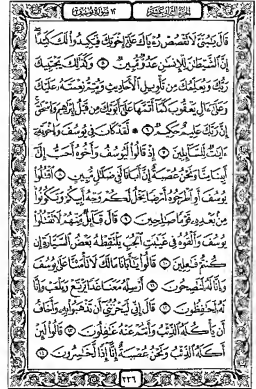 الجزء الثاني عشر
سورة يوسف ١٢
قَالَ يَـٰبُنَىَّ لَا تَقْصُصْ رُءْيَاكَ عَلَىٰٓ إِخْوَتِكَ فَيَكِيدُوا۟ لَكَ كَيْدًا
إِنَّ ٱلشَّيْطَـٰنَ لِلْإِنسَـٰنِ عَدُوٌّ مُّبِينٌ ٥ وَكَذَٰلِكَ يَجْتَبِيكَ
رَبُّكَ وَيُعَلِّمُكَ مِن تَأْوِيلِ ٱلْأَحَادِيثِ وَيُتِمُّ نِعْمَتَهُۥ عَلَيْكَ
وَعَلَىٰٓ ءَالِ يَعْقُوبَ كَمَآ أَتَمَّهَا عَلَىٰٓ أَبَوَيْكَ مِن قَبْلُ إِبْرَٰهِيمَ وَإِسْحَـٰقَ
إِنَّ رَبَّكَ عَلِيمٌ حَكِيمٌ ٦ لَّقَدْ كَانَ فِى يُوسُفَ وَإِخْوَتِهِۦٓ
ءَايَـٰتٌ لِّلسَّآئِلِينَ ٧ إِذْ قَالُوا۟ لَيُوسُفُ وَأَخُوهُ أَحَبُّ إِلَىٰٓ
أَبِينَا مِنَّا وَنَحْنُ عُصْبَةٌ إِنَّ أَبَانَا لَفِى ضَلَـٰلٍ مُّبِينٍ ٨ ٱقْتُلُوا۟
يُوسُفَ أَوِ ٱطْرَحُوهُ أَرْضًا يَخْلُ لَكُمْ وَجْهُ أَبِيكُمْ وَتَكُونُوا۟
مِنۢ بَعْدِهِۦ قَوْمًا صَـٰلِحِينَ ٩ قَالَ قَآئِلٌ مِّنْهُمْ لَا تَقْتُلُوا۟
يُوسُفَ وَأَلْقُوهُ فِى غَيَـٰبَتِ ٱلْجُبِّ يَلْتَقِطْهُ بَعْضُ ٱلسَّيَّارَةِ إِن
كُنتُمْ فَـٰعِلِينَ ١٠ قَالُوا۟ يَـٰٓأَبَانَا مَا لَكَ لَا تَأْمَ۫نَّا عَلَىٰ يُوسُفَ
وَإِنَّا لَهُۥ لَنَـٰصِحُونَ ١١ أَرْسِلْهُ مَعَنَا غَدًا يَرْتَعْ وَيَلْعَبْ وَإِنَّا
لَهُۥ لَحَـٰفِظُونَ ١٢ قَالَ إِنِّى لَيَحْزُنُنِىٓ أَن تَذْهَبُوا۟ بِهِۦ وَأَخَافُ
أَن يَأْكُلَهُ ٱلذِّئْبُ وَأَنتُمْ عَنْهُ غَـٰفِلُونَ ١٣ قَالُوا۟ لَئِنْ
أَكَلَهُ ٱلذِّئْبُ وَنَحْنُ عُصْبَةٌ إِنَّآ إِذًا لَّخَـٰسِرُونَ ١٤
٢٣٦